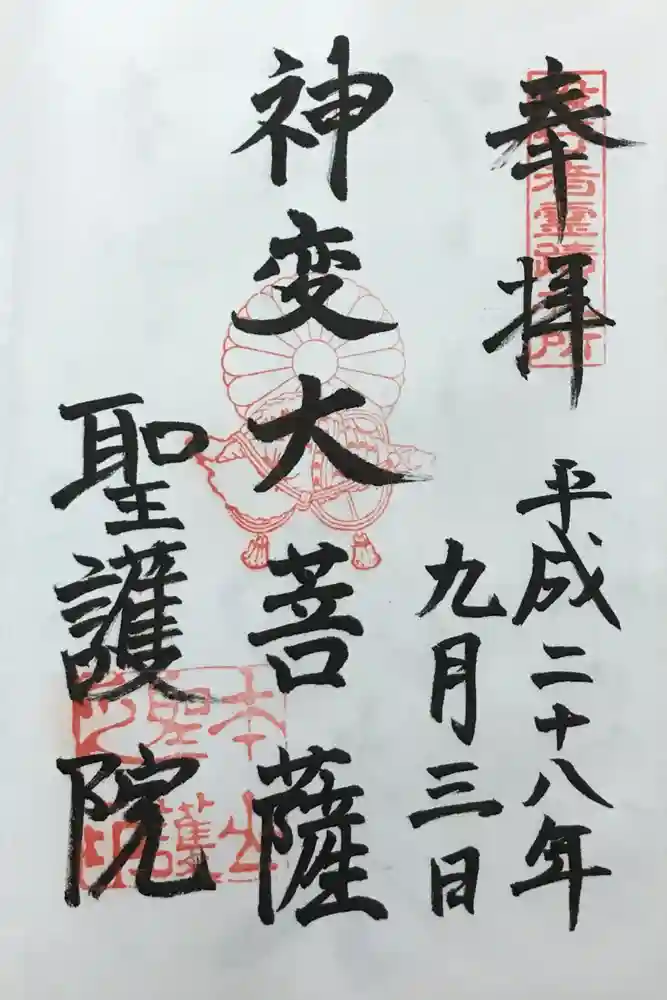 奉拝
平成二十八年
九月三日
神変大菩薩
聖護院
本山
聖護